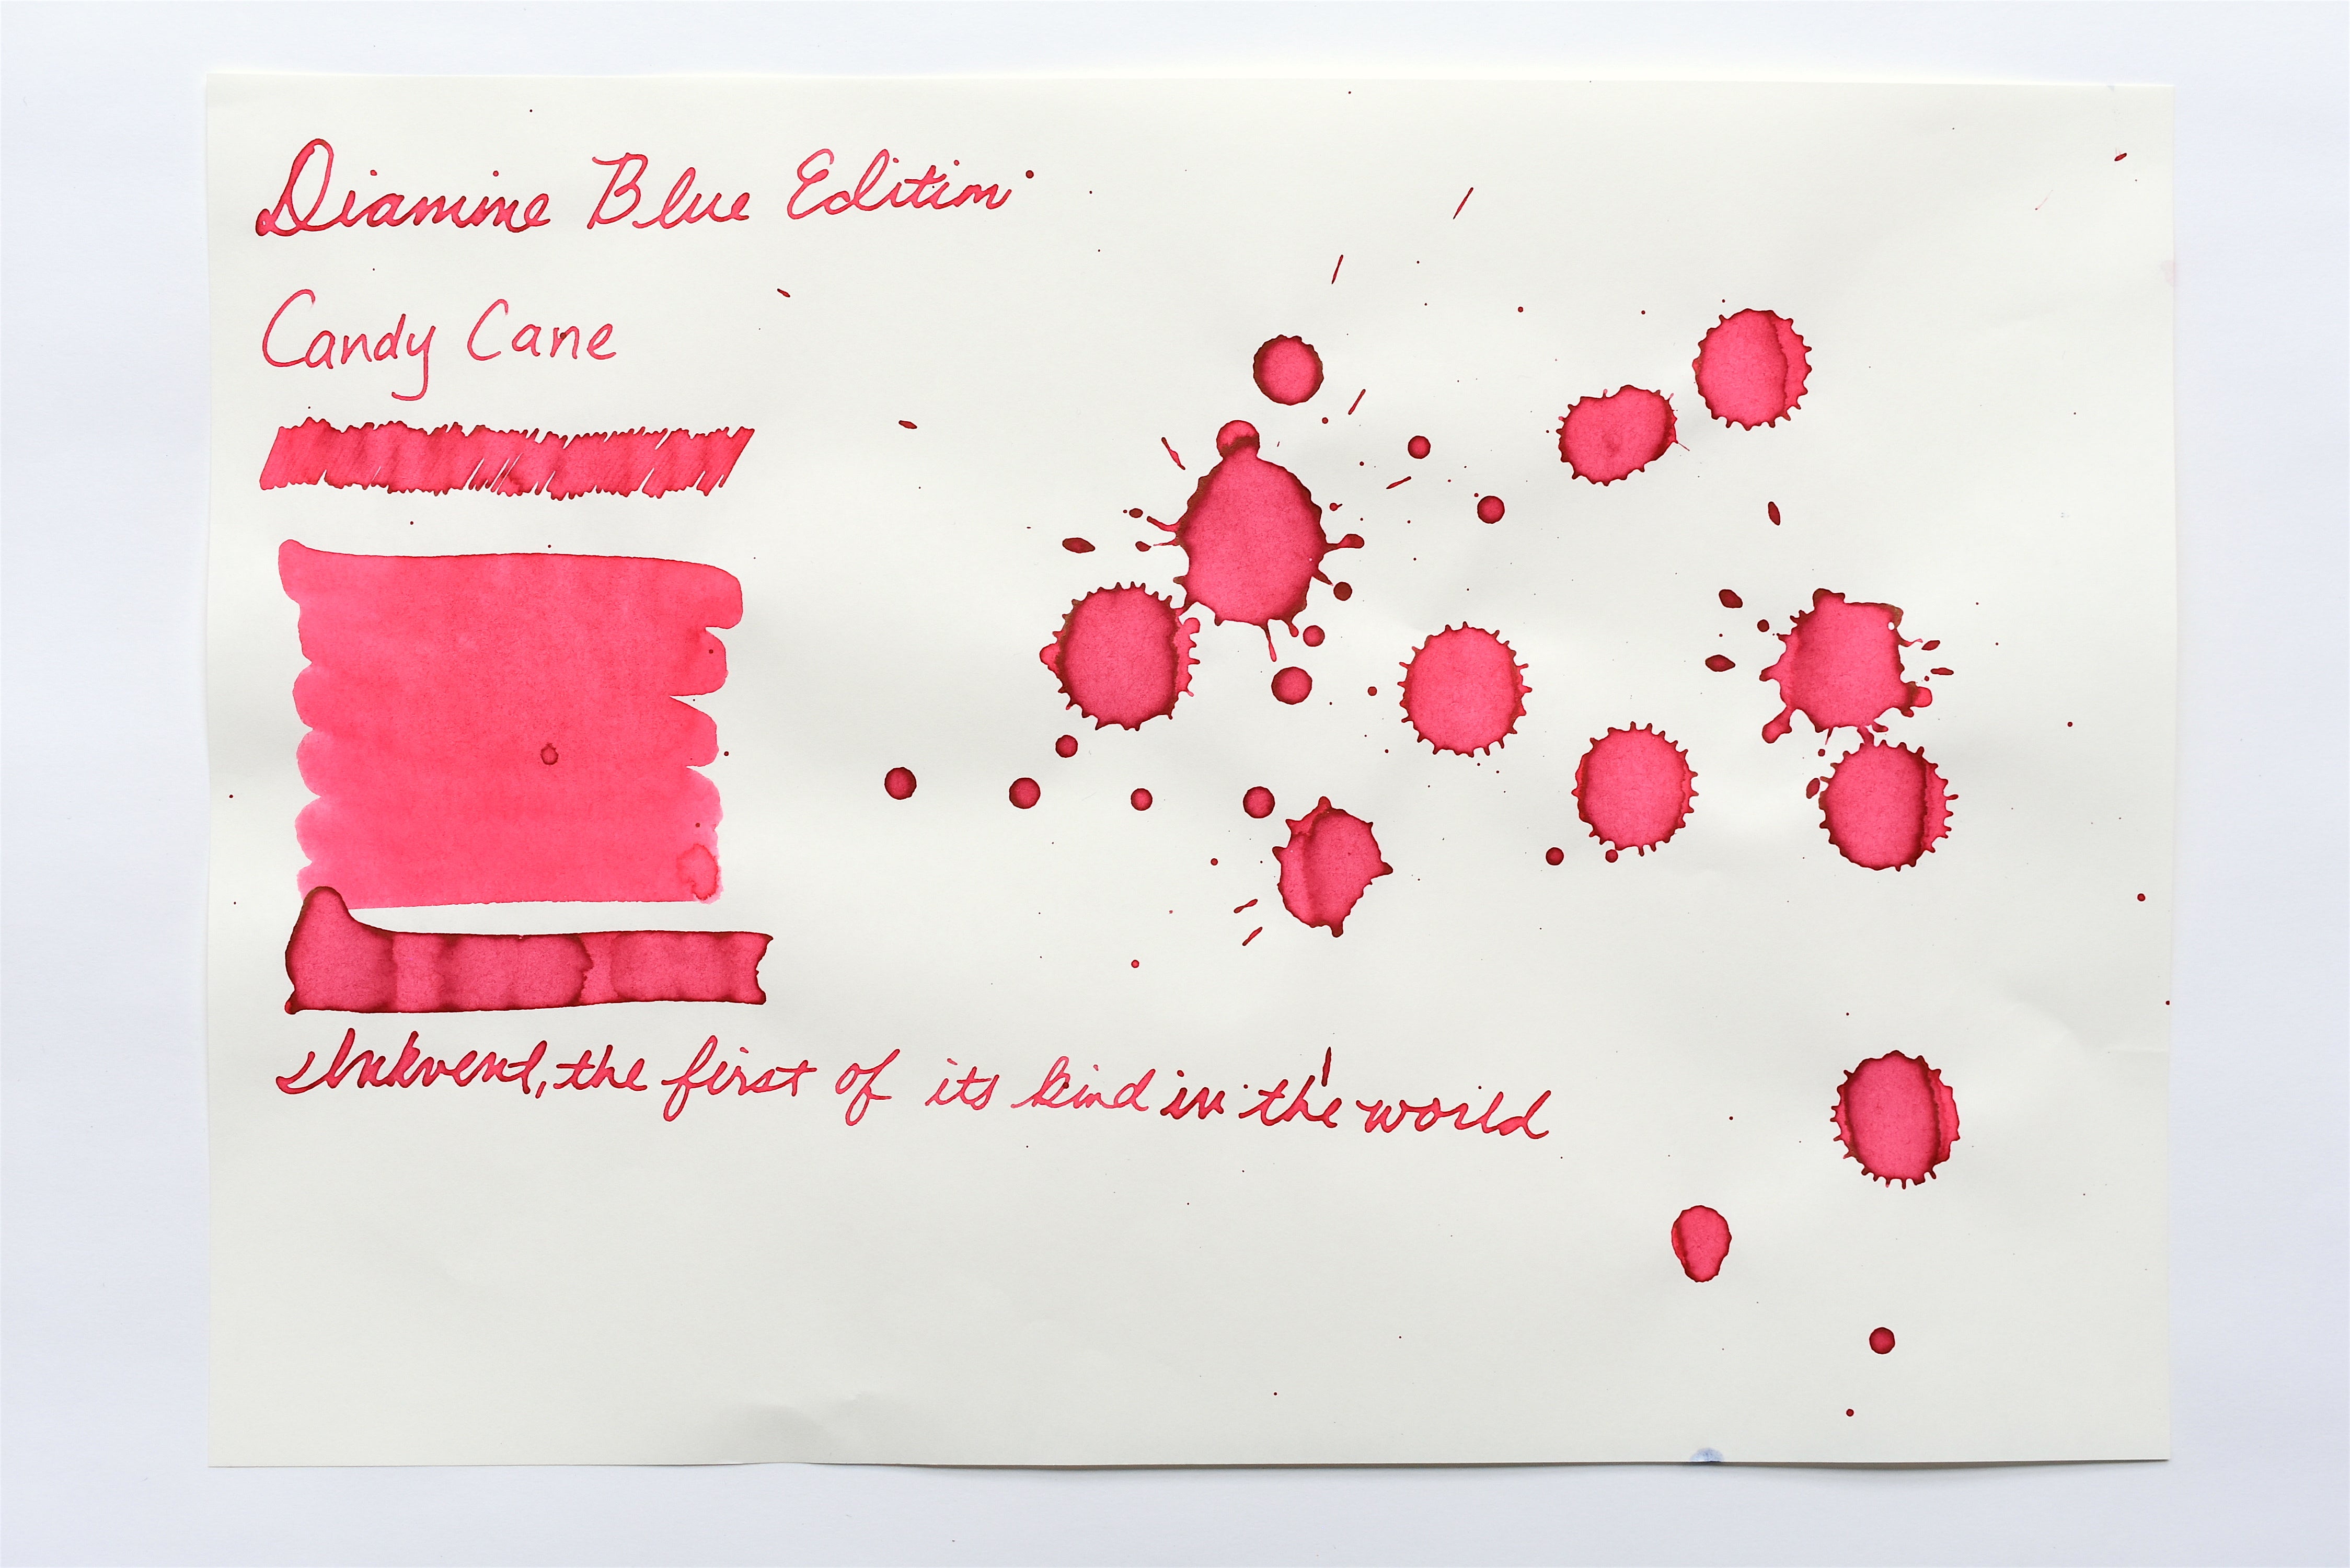 Diamine Blue Edition
Candy Cane
Inkvent, the first of its kind in the world